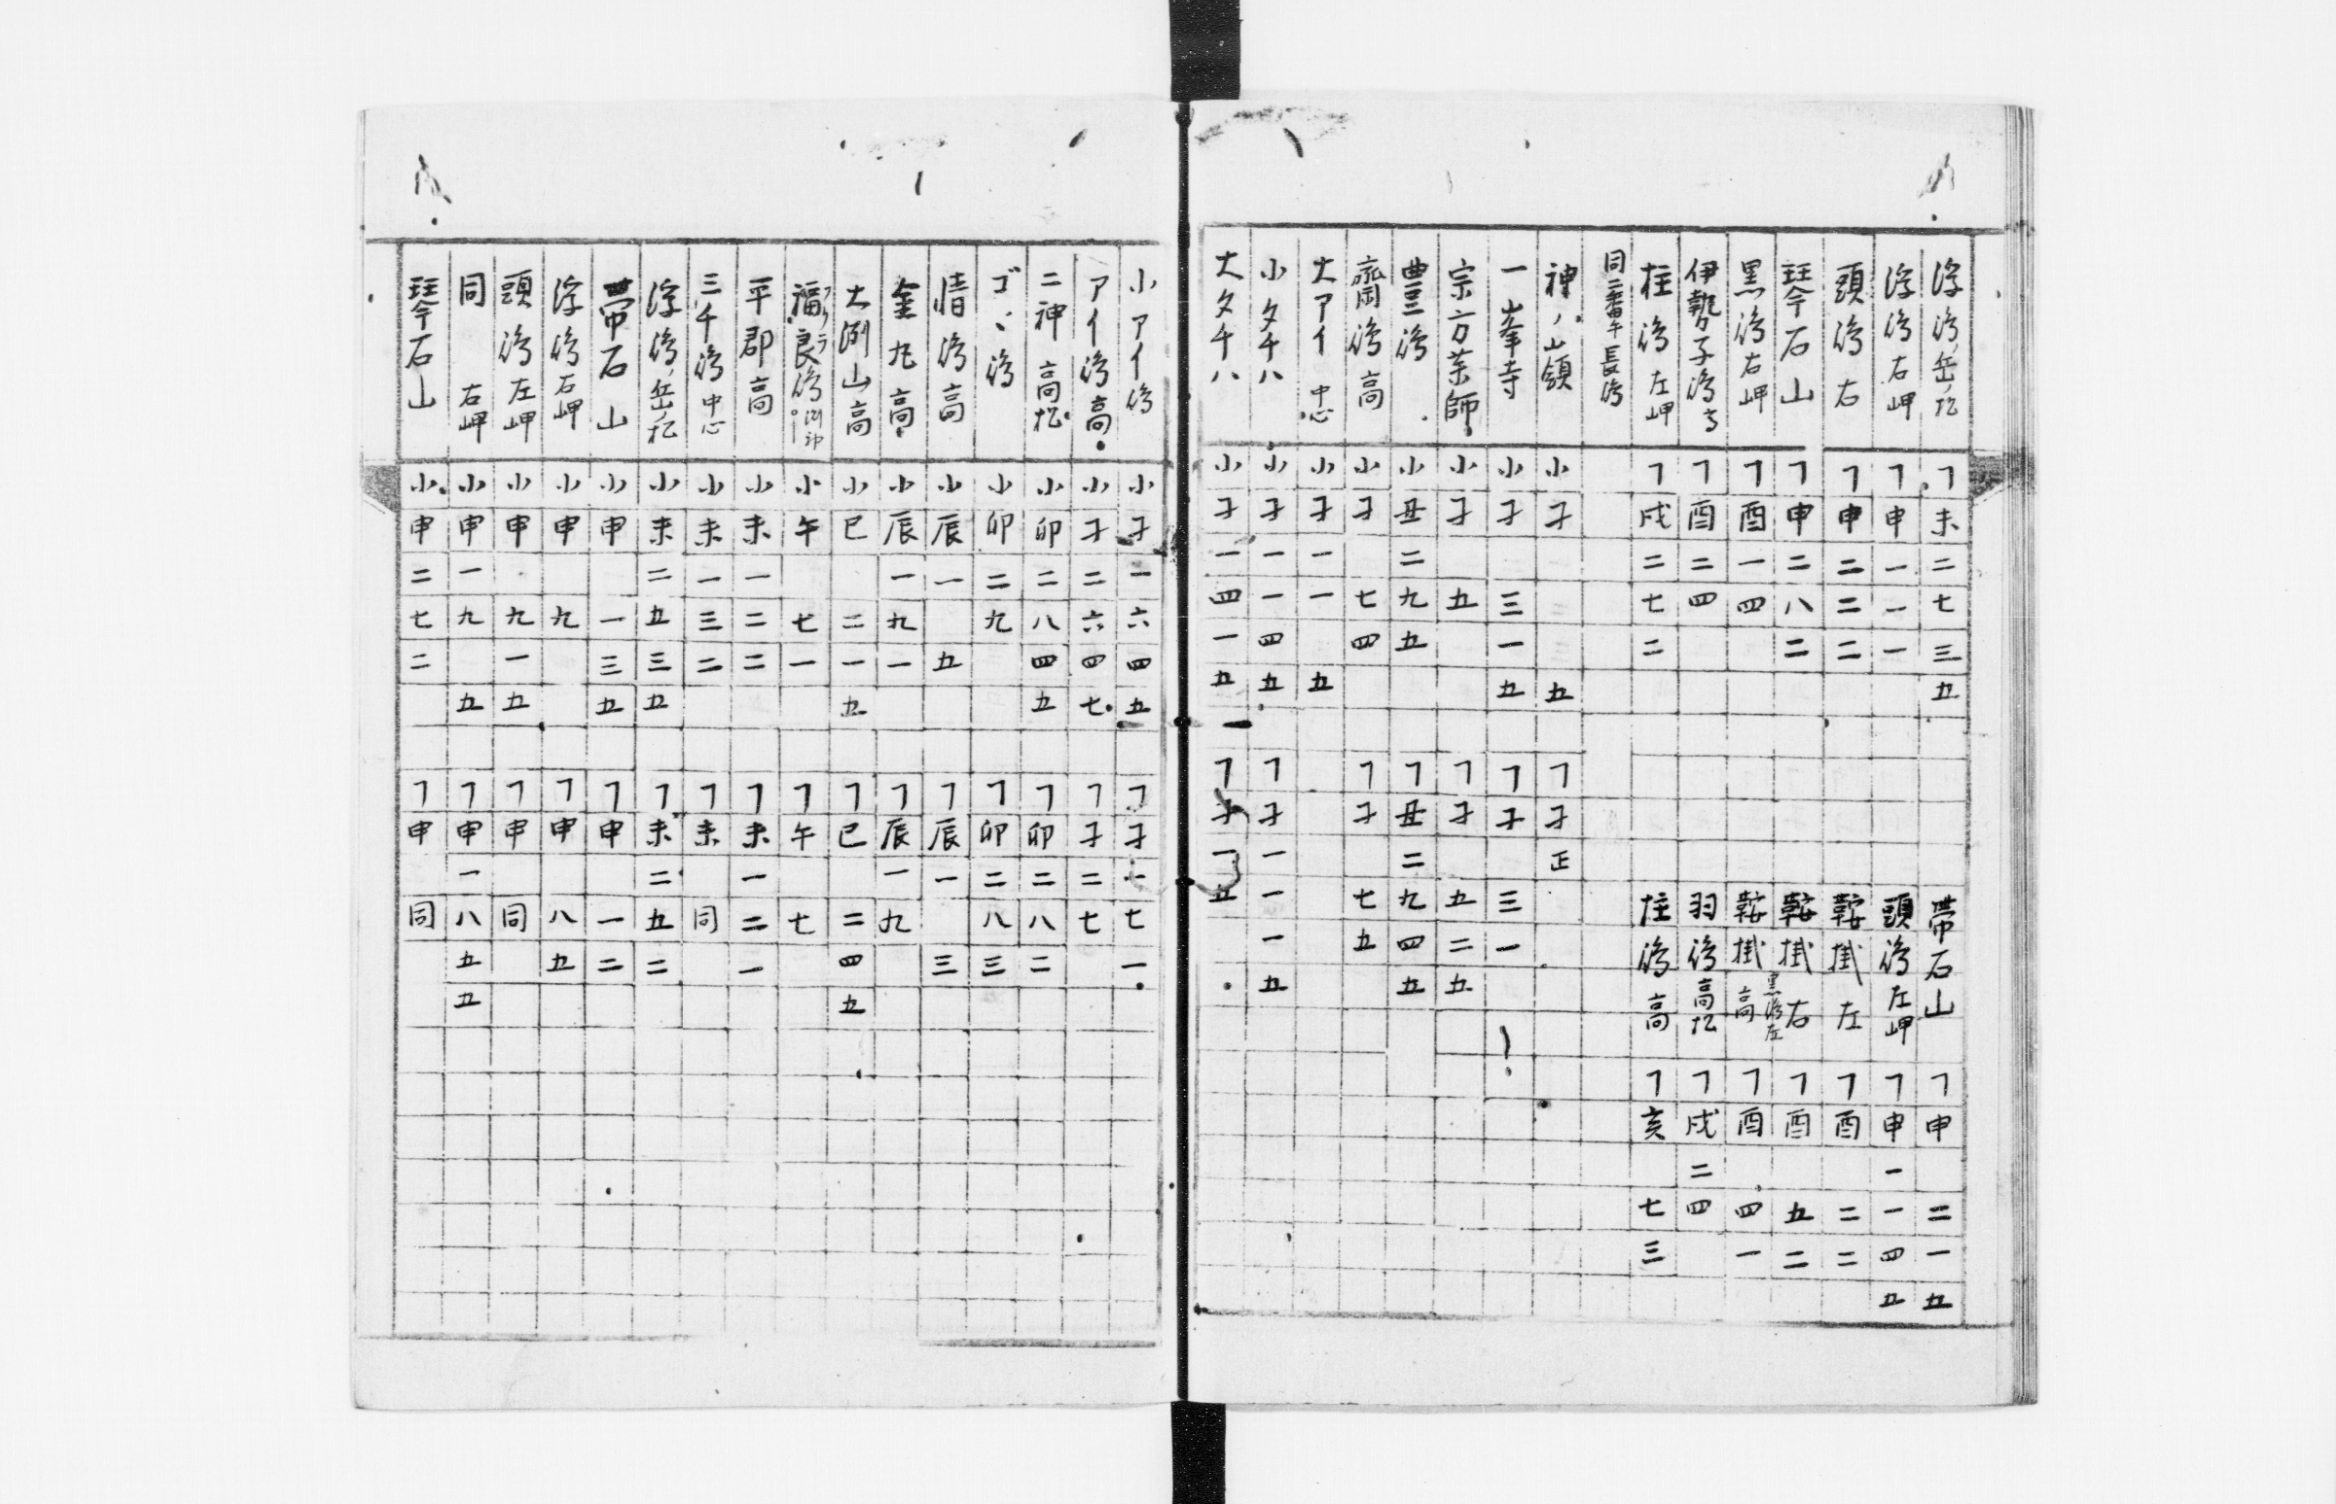 浮嶋ノ岳ノ松 ㇕未二七三五 帯石山 ㇕申二一五
浮嶋右岬 ㇕申一一一 頭嶋左岬 ㇕申一一四五
頭嶋右 ㇕申二二二 鞍掛左 ㇕酉二二
琴石山 ㇕申二八二 鞍掛右 ㇕酉五二
黒嶋左
黒嶋右岬 ㇕酉一四 鞍掛高 ㇕酉四一
伊勢子嶋高 ㇕酉二四 羽嶋高松 ㇕戌二四
柱嶋左岬 ㇕戌二七二 柱嶋高 ㇕亥七三
同二番午長嶋
神ノ山領 小子五 ㇕子正
一峯寺 小子三一五 ㇕子三一
宗方薬師 小子五 ㇕子五二五
豊嶋 小丑二九五 ㇕丑二九四五
齋嶋高 小子七四 ㇕子七五
大アイ中心 小子一一五
小タチハ 小子一一四五 ㇕子一一一五
大タチハ 小子一四一五 ㇕子一五
小アイ嶋 小子一六四五 ㇕子一七一
アイ嶋高 小子二六四七 ㇕子二七
二神高松 小卯二八四五 ㇕卯二八二
ゴヽ嶋 小卯二九 ㇕卯二八三
情嶋高 小辰一五 ㇕辰一三
金九高 小辰一九一 ㇕辰一九
大洌山高 小巳二一五 ㇕巳二四五
福良嶋 小午七一 ㇕午七
平郡高 小未一二二 ㇕未一二一
三千嶋中心 小未一三二 ㇕未同
浮嶋ノ岳ノ松 小未二五三五 ㇕未二五二
帯石山 小申一三五 ㇕申一二
浮嶋右岬 小申九 ㇕申八五
頭嶋左岬 小申九一五 ㇕申同
同右岬 小申一九五 ㇕申一八五五
琴石山 小申二七二 ㇕申同